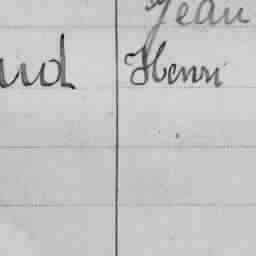 Jean
ud Henri